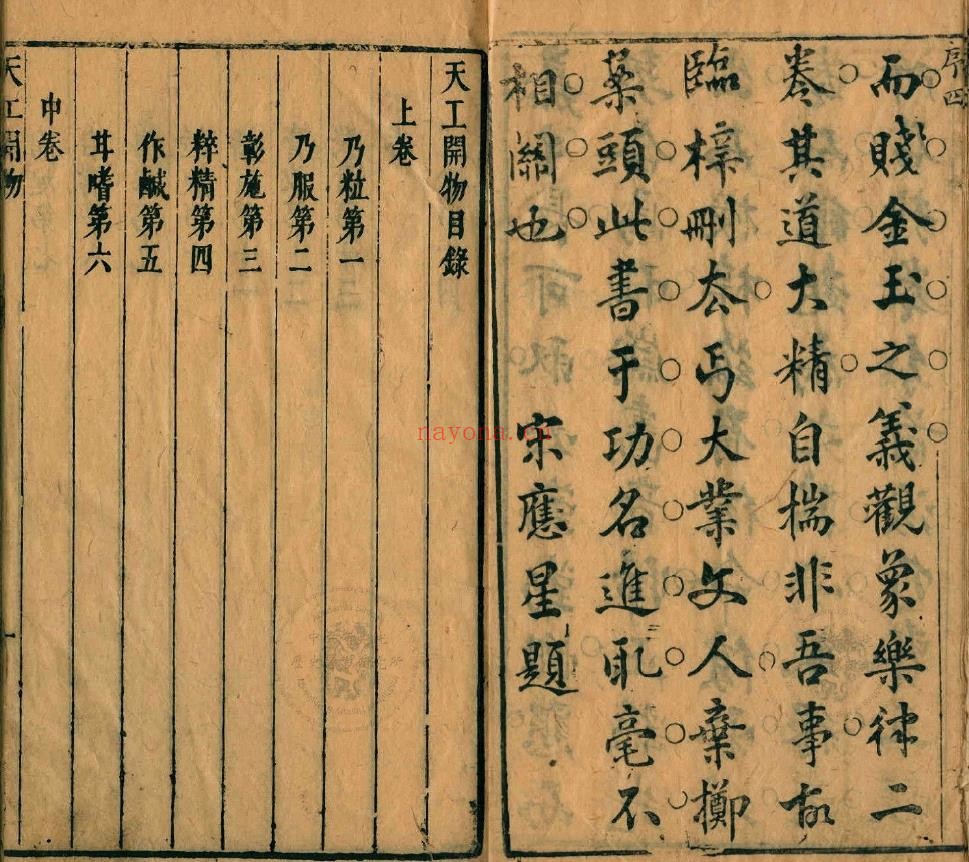 序四
而賤金玉之義觀象樂律二
卷其道大精自揣非吾事故
臨梓刪去丐大業文人棄擲
案頭此書于功名進取毫不
相關也 宋應星題
天工開物目錄
上卷
乃粒第一
乃服第二
彰施第三
粹精第四
作鹹第五
甘嗜第六
中卷
天工開物
一
nayona.cn